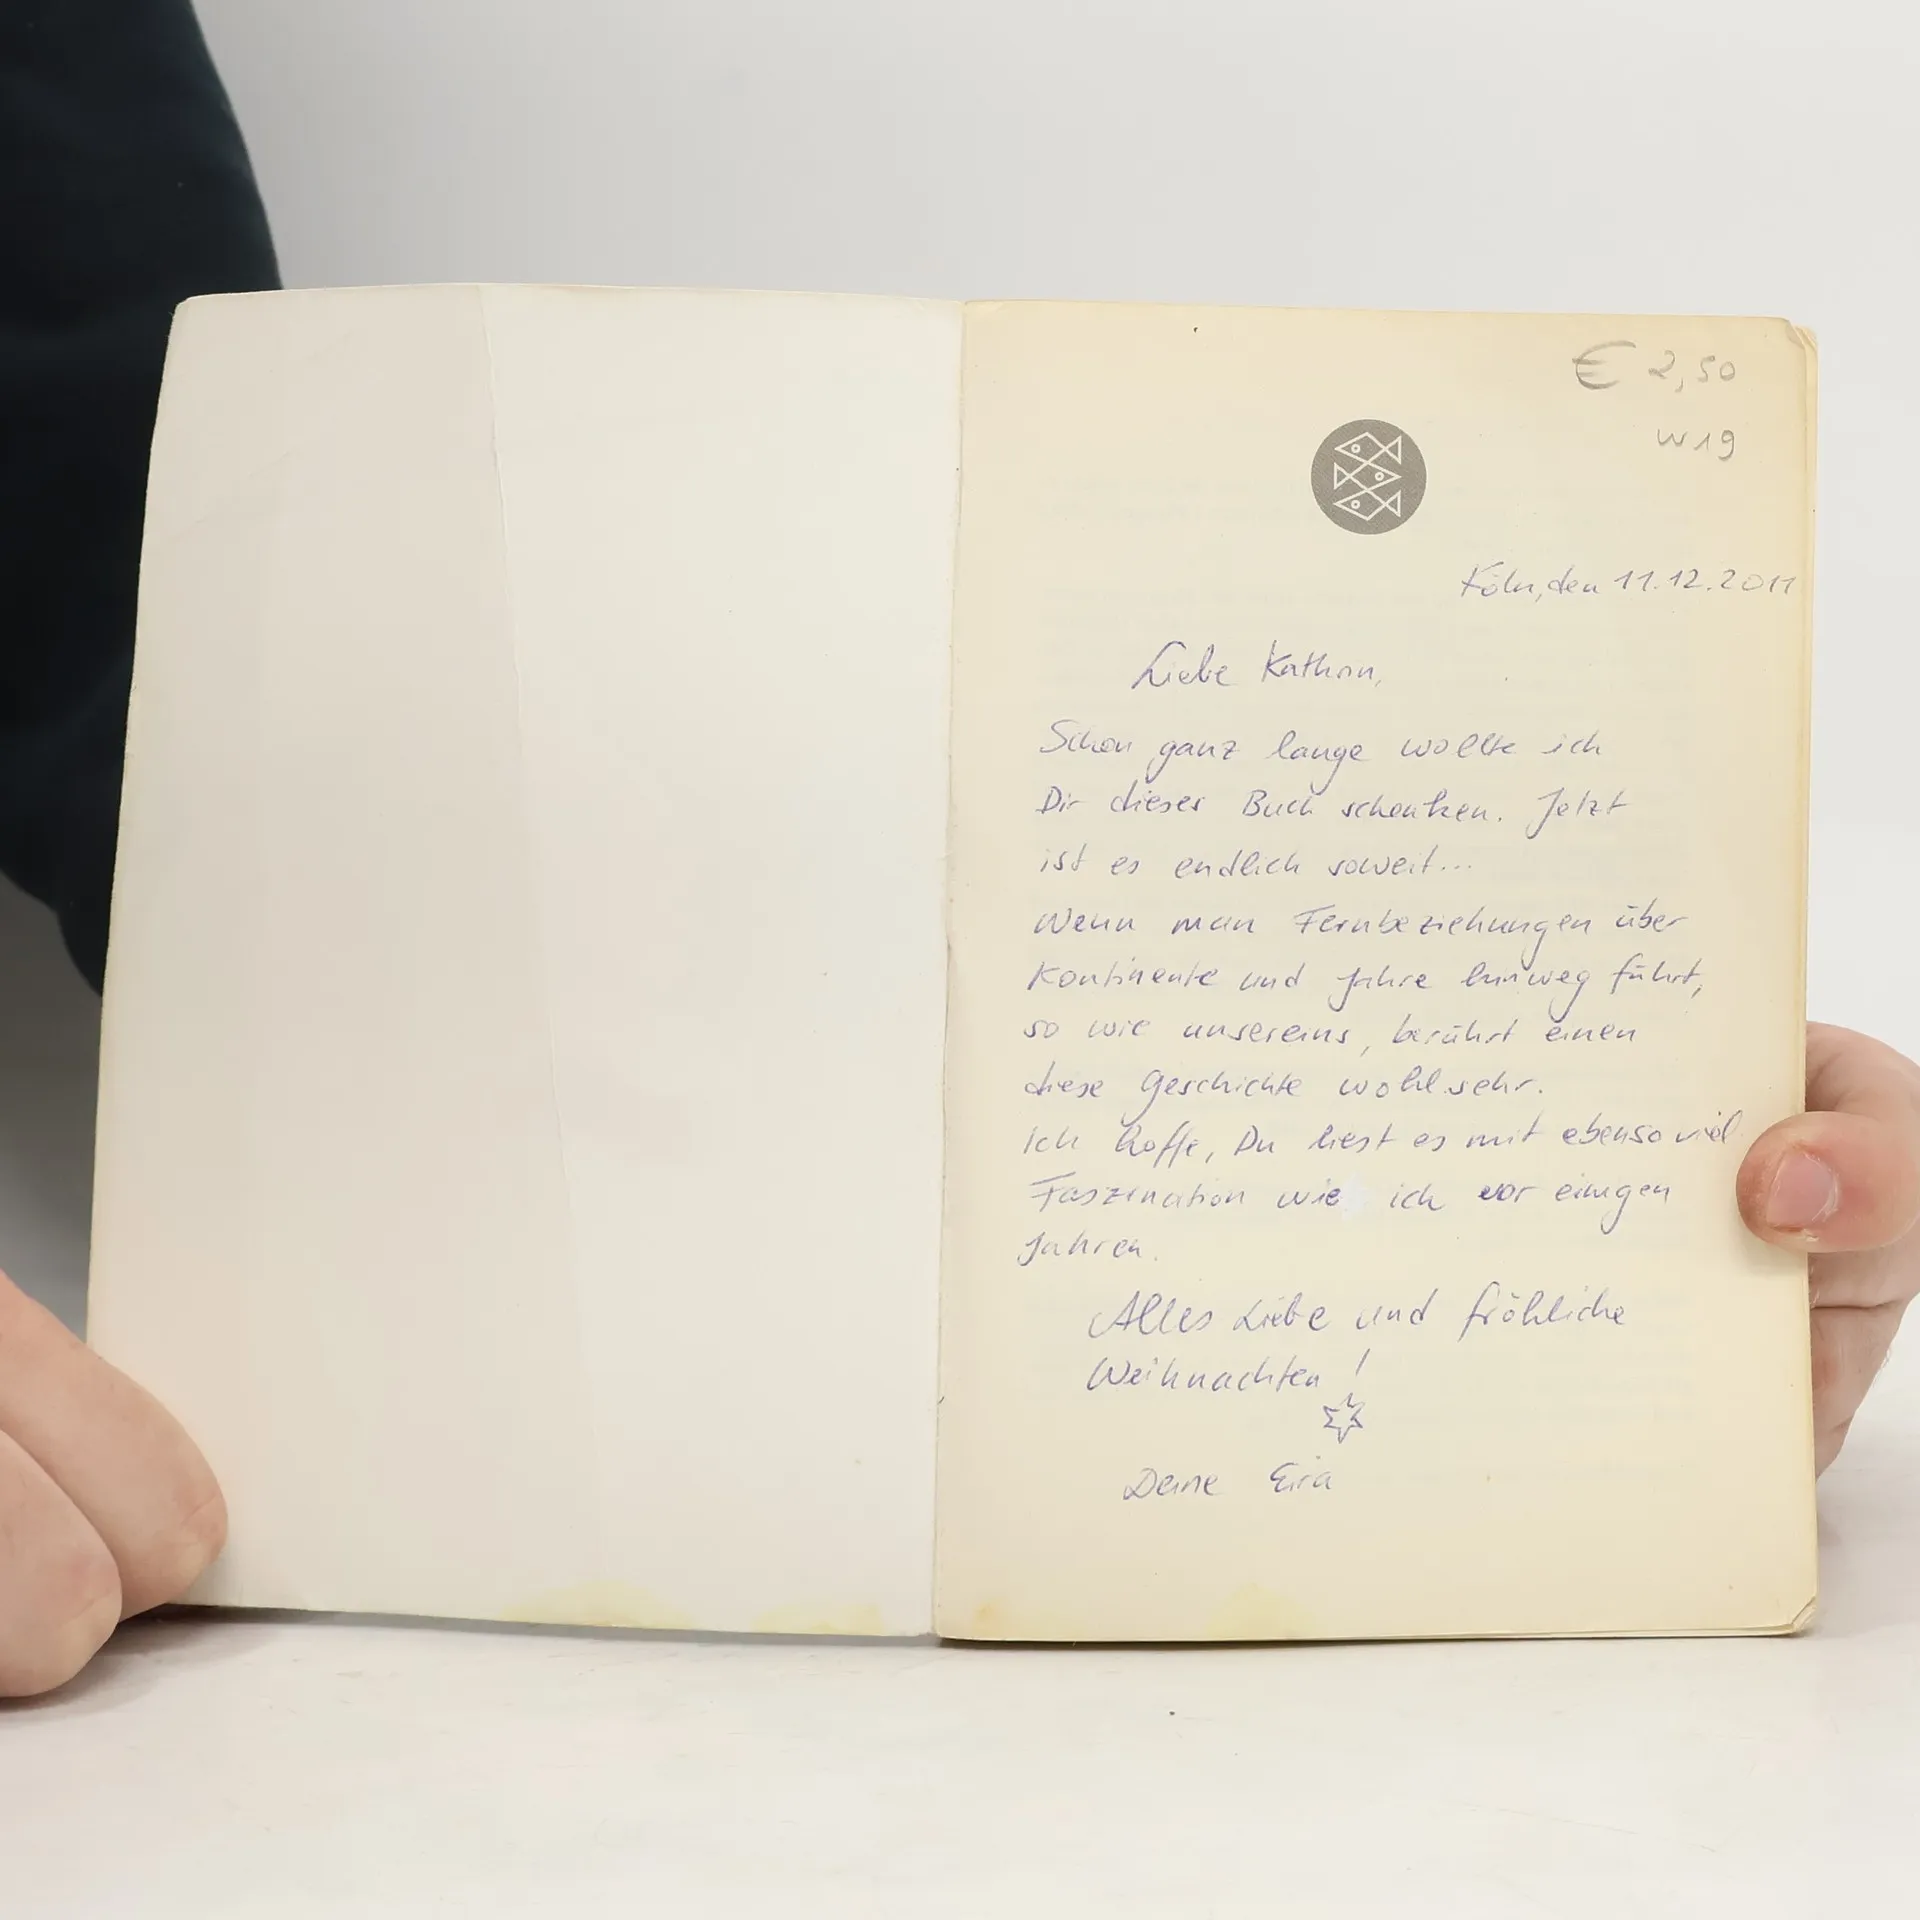 € 2,50
W19
Köln, den 11.12.2011
Liebe Kathrin,
Schon ganz lange wollte ich
Dir dieses Buch schenken. Jetzt
ist es endlich soweit...
Wenn man Fernbeziehungen über
Kontinente und Jahre hinweg führt,
so wie unsereins, berührt einen
diese Geschichte wohl sehr.
Ich hoffe, Du liest es mit ebenso viel
Faszination wie ich vor einigen
Jahren.
Alles Liebe und fröhliche
Weihnachten!
Deine Eira